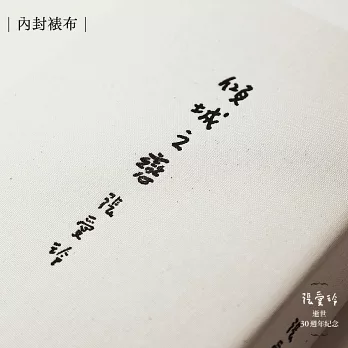 ｜內封裱布｜
傾城之戀
張愛玲
張愛玲
逝世
30週年紀念